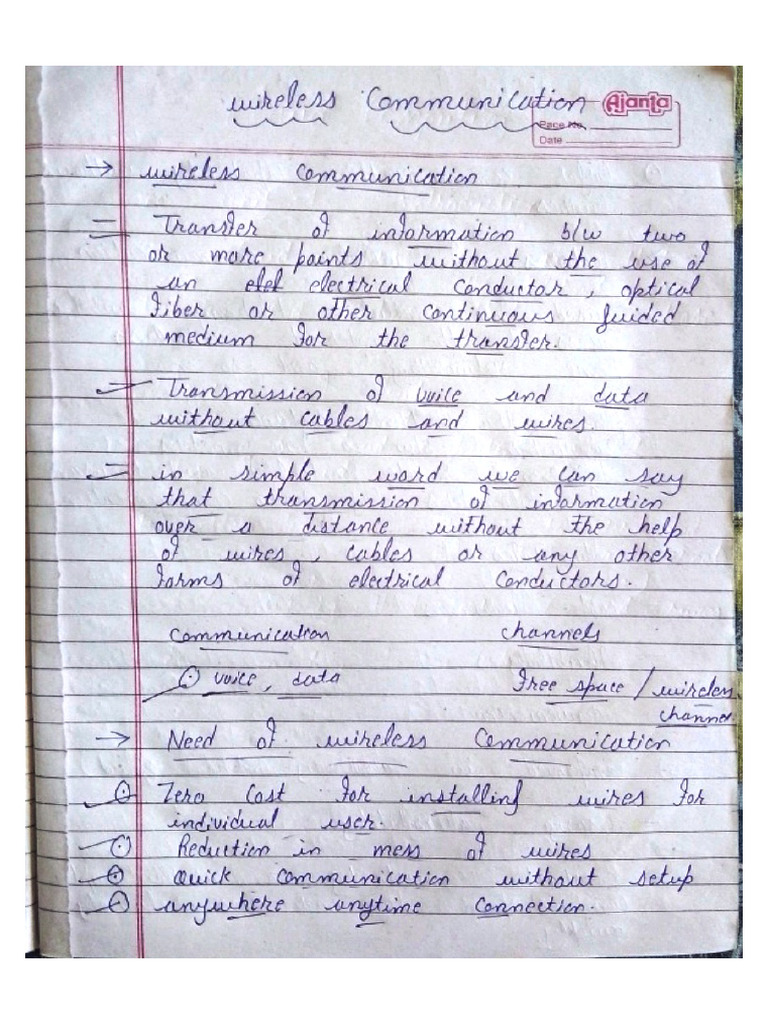 wireless Communication
Ajanta
Page No.
Date
→ wireless Communication
= Transfer of information b/w two
or more points without the use of
an elel electrical conductor, optical
fiber or other continuous guided
medium for the transfer.
= Transmission of voice and data
without cables and wires.
= in simple word we can say
that transmission of information
over a distance without the help
of wires, cables or any other
forms of electrical conductors.
Communication channels
voice, data Free space / wireless
channel
→ Need of wireless Communication
Zero Cost for installing wires for
individual user.
Reduction in mess of wires
Quick communication without setup
anywhere anytime connection.